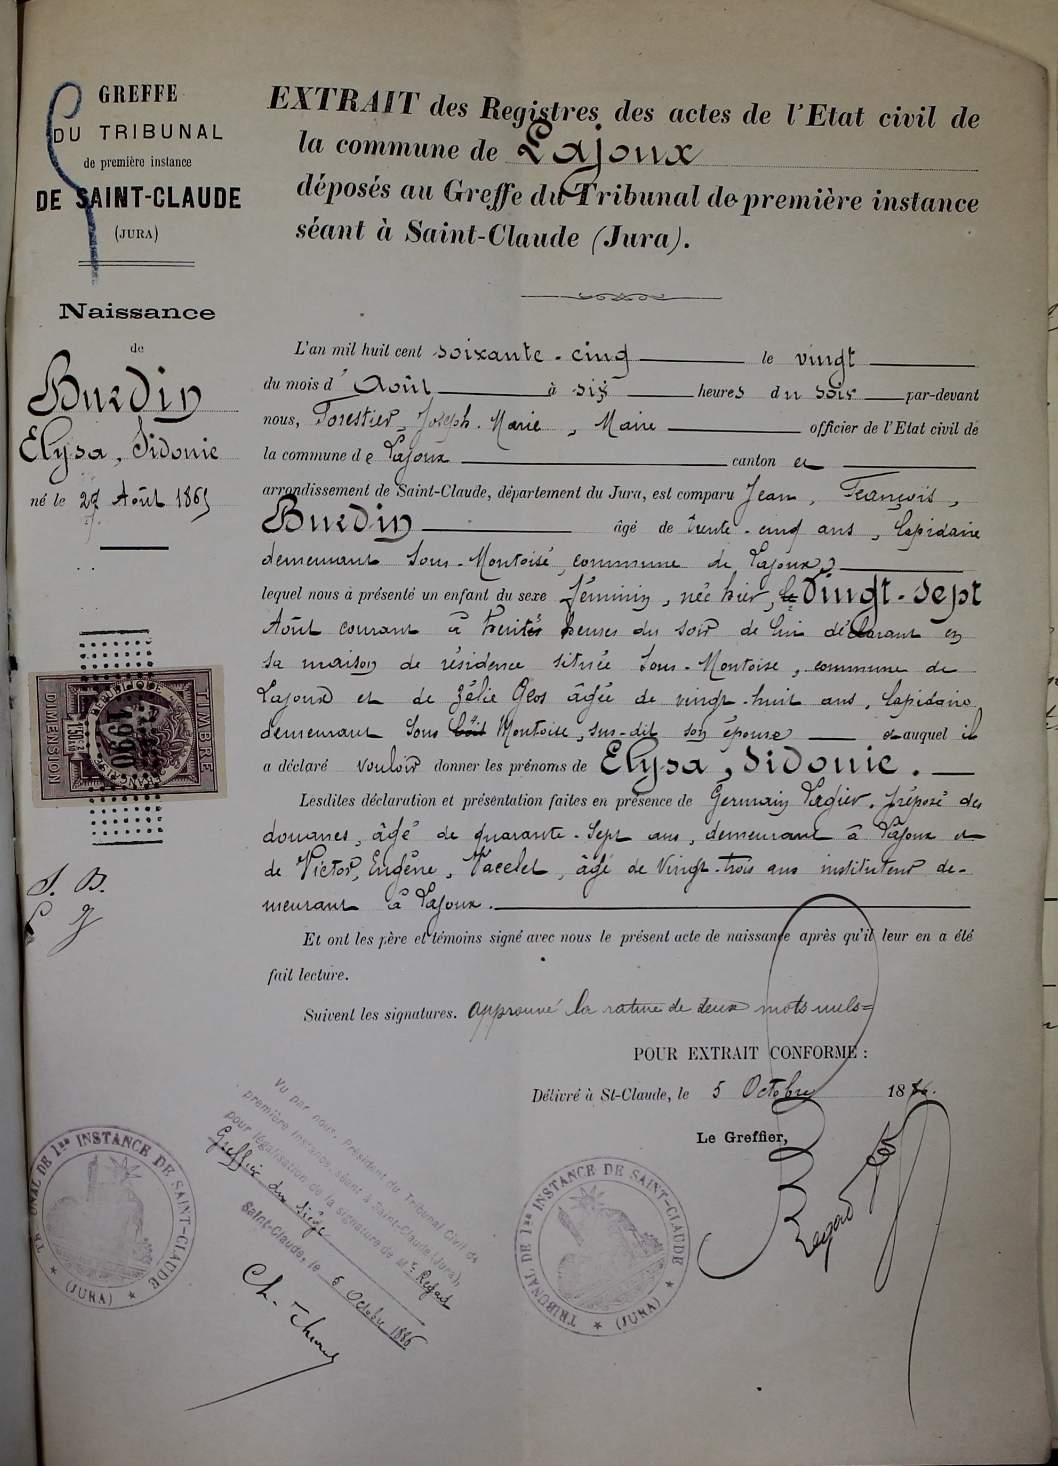 GREFFE
DU TRIBUNAL
de première instance
DE SAINT-CLAUDE
(JURA)
Naissance
de
Burdin
Elysa, Sidonie
né le 27 Août 1865
EXTRAIT des Registres des actes de l'Etat civil de
la commune de Lajoux
déposés au Greffe du Tribunal de première instance
séant à Saint-Claude (Jura).
L'an mil huit cent soixante-cinq le vingt
du mois d'Août à six heures du soir par-devant
nous, Forestier, Joseph-Marie, Maire officier de l'Etat civil de
la commune de Lajoux canton et
arrondissement de Saint-Claude, département du Jura, est comparu Jean, François,
Burdin âgé de trente-cinq ans, lapidaire
demeurant Sous-Montoise, commune de Lajoux,
lequel nous à présenté un enfant du sexe féminin, née hier, le Vingt-sept
Août courant à heures du soir de lui déclarant en
sa maison de résidence située Sous-Montoise, commune de
Lajoux et de Zélie Gros âgée de vingt-huit ans, lapidaire,
demeurant Sous Montoise, sus-dit son épouse et auquel il
a déclaré vouloir donner les prénoms de Elysa, Sidonie.
Lesdites déclaration et présentation faites en présence de Germain Lagier, préposé des
douanes, âgé de quarante-sept ans, demeurant à Lajoux et
de Victor, Eugène, Vacelet, âgé de vingt-trois ans instituteur de-
meurant à Lajoux.
Et ont les père et témoins signé avec nous le présent acte de naissance après qu'il leur en a été
fait lecture.
Suivent les signatures. approuvé la rature de deux mots nuls=
POUR EXTRAIT CONFORME :
Délivré à St-Claude, le 5 Octobre 1886.
Le Greffier,
Regard
TIMBRE
REPUBLIQUE FRANÇAISE
DIMENSION
1990
J. B.
L G
Vu par nous, Président du Tribunal Civil de
première instance, séant à Saint-Claude (Jura),
pour légalisation de la signature de Mr Regard
Greffier du Siège
Saint-Claude, le 6 Octobre 1886
TRIBUNAL DE 1re INSTANCE DE SAINT-CLAUDE
(JURA)
TRIBUNAL DE 1re INSTANCE DE SAINT-CLAUDE
(JURA)